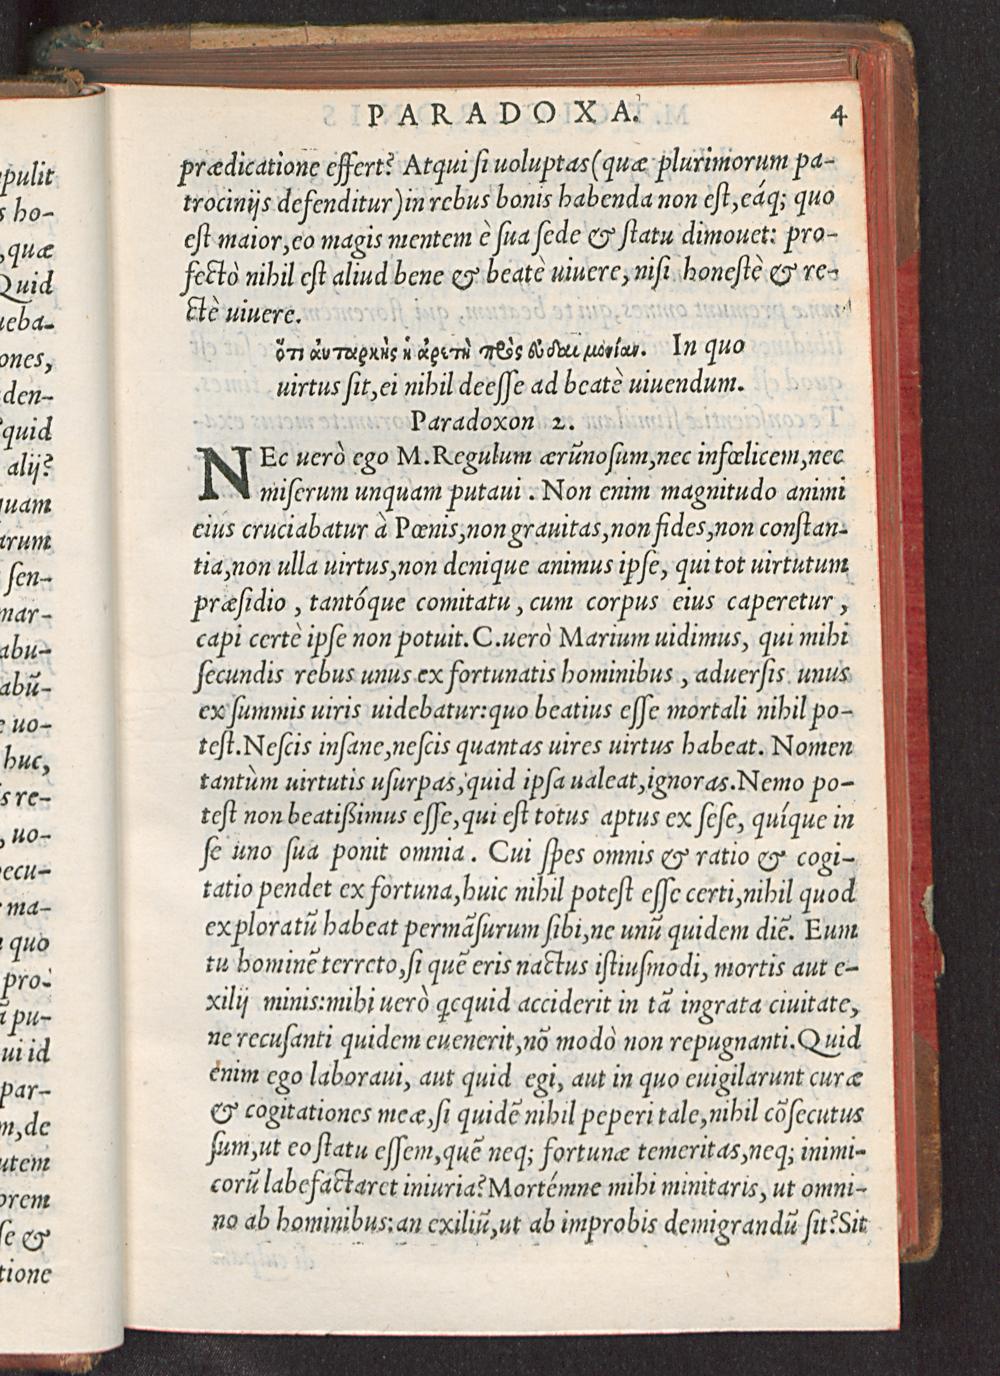 PARADOXA. 4
prædicatione effert? Atqui si uoluptas (quæ plurimorum pa-
trocinijs defenditur) in rebus bonis habenda non est, eáq; quo
est maior, eo magis mentem è sua sede & statu dimouet: pro-
fectò nihil est aliud bene & beatè uiuere, nisi honestè & re-
ctè uiuere.
ὅτι αὐταρκὴς ἡ ἀρετὴ πρὸς εὐδαιμονίαν. In quo
uirtus sit, ei nihil deesse ad beatè uiuendum.
Paradoxon 2.
NEc uerò ego M. Regulum ærũnosum, nec infœlicem, nec
miserum unquam putaui. Non enim magnitudo animi
eius cruciabatur à Pœnis, non grauitas, non fides, non constan-
tia, non ulla uirtus, non denique animus ipse, qui tot uirtutum
præsidio, tantóque comitatu, cum corpus eius caperetur,
capi certè ipse non potuit. C. uerò Marium uidimus, qui mihi
secundis rebus unus ex fortunatis hominibus, aduersis unus
ex summis uiris uidebatur: quo beatius esse mortali nihil po-
test. Nescis insane, nescis quantas uires uirtus habeat. Nomen
tantùm uirtutis usurpas, quid ipsa ualeat, ignoras. Nemo po-
test non beatißimus esse, qui est totus aptus ex sese, quíque in
se uno sua ponit omnia. Cui spes omnis & ratio & cogi-
tatio pendet ex fortuna, huic nihil potest esse certi, nihil quod
exploratũ habeat permãsurum sibi, ne unũ quidem diẽ. Eum
tu hominẽ terreto, si quẽ eris nactus istiusmodi, mortis aut e-
xilij minis: mihi uerò qcquid acciderit in tã ingrata ciuitate,
ne recusanti quidem euenerit, nõ modò non repugnanti. Quid
enim ego laboraui, aut quid egi, aut in quo euigilarunt curæ
& cogitationes meæ, si quidẽ nihil peperi tale, nihil cõsecutus
sum, ut eo statu essem, quẽ neq; fortunæ temeritas, neq; inimi-
corũ labefactaret iniuria? Mortémne mihi minitaris, ut omni-
no ab hominibus: an exiliũ, ut ab improbis demigrandũ sit? Sit
pulit
s ho-
, quæ
Quid
ueba-
ones,
den-
quid
alij?
quam
arum
sen-
mar-
abu-
abũ-
e uo-
huc,
s re-
, uo-
ecu-
ma-
quo
prò
ã pu-
ui id
par-
m, de
utem
orem
se &
tione